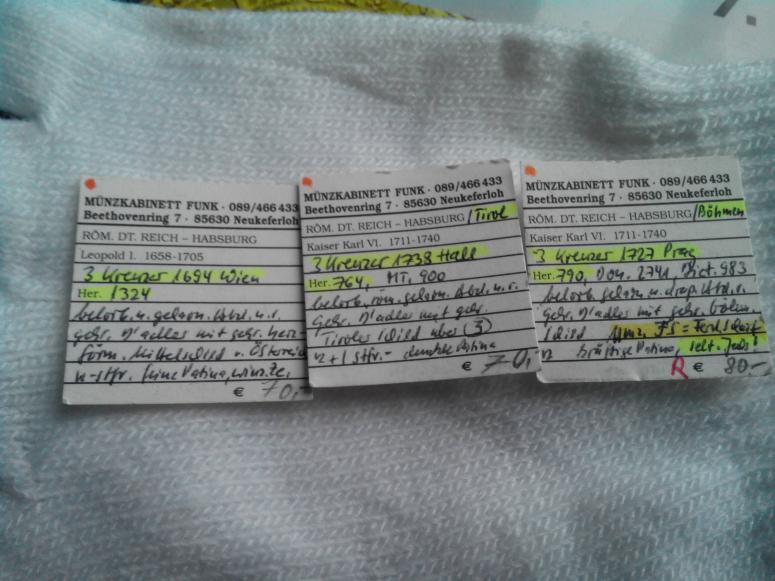 MÜNZKABINETT FUNK · 089/466 433
Beethovenring 7 · 85630 Neukeferloh
RÖM. DT. REICH – HABSBURG
Leopold I. 1658-1705
3 Kreuzer 1694 Wien
Her. 1324
belorb. u. geharn. Btbd. n. r.
gekr. D'adler mit gekr. herz-
förm. Mittelschild v. Österreich
n-stfr. feine Patina, winz.
€ 70,-
MÜNZKABINETT FUNK · 089/466 433
Beethovenring 7 · 85630 Neukeferloh
RÖM. DT. REICH – HABSBURG /Tirol
Kaiser Karl VI. 1711-1740
3 Kreuzer 1738 Hall
Her. 764, MT. 900
belorb. röm. geharn. Btbd. n. r.
gekr. D'adler mit gekr.
Tiroler Schild über (3)
stfr. - dunkle Patina
€ 70,-
MÜNZKABINETT FUNK · 089/466 433
Beethovenring 7 · 85630 Neukeferloh
RÖM. DT. REICH – HABSBURG /Böhmen
Kaiser Karl VI. 1711-1740
3 Kreuzer 1727 Prag
Her. 790, Don. 2741, Diet. 983
belorb. geharn. u. drap. Btbd. r.
gekr. D'adler mit gekr. böhm.
Schild Mmz. FS = Ferd. Scharf
kräftige Patina, selt. Jahr!
R € 80,-